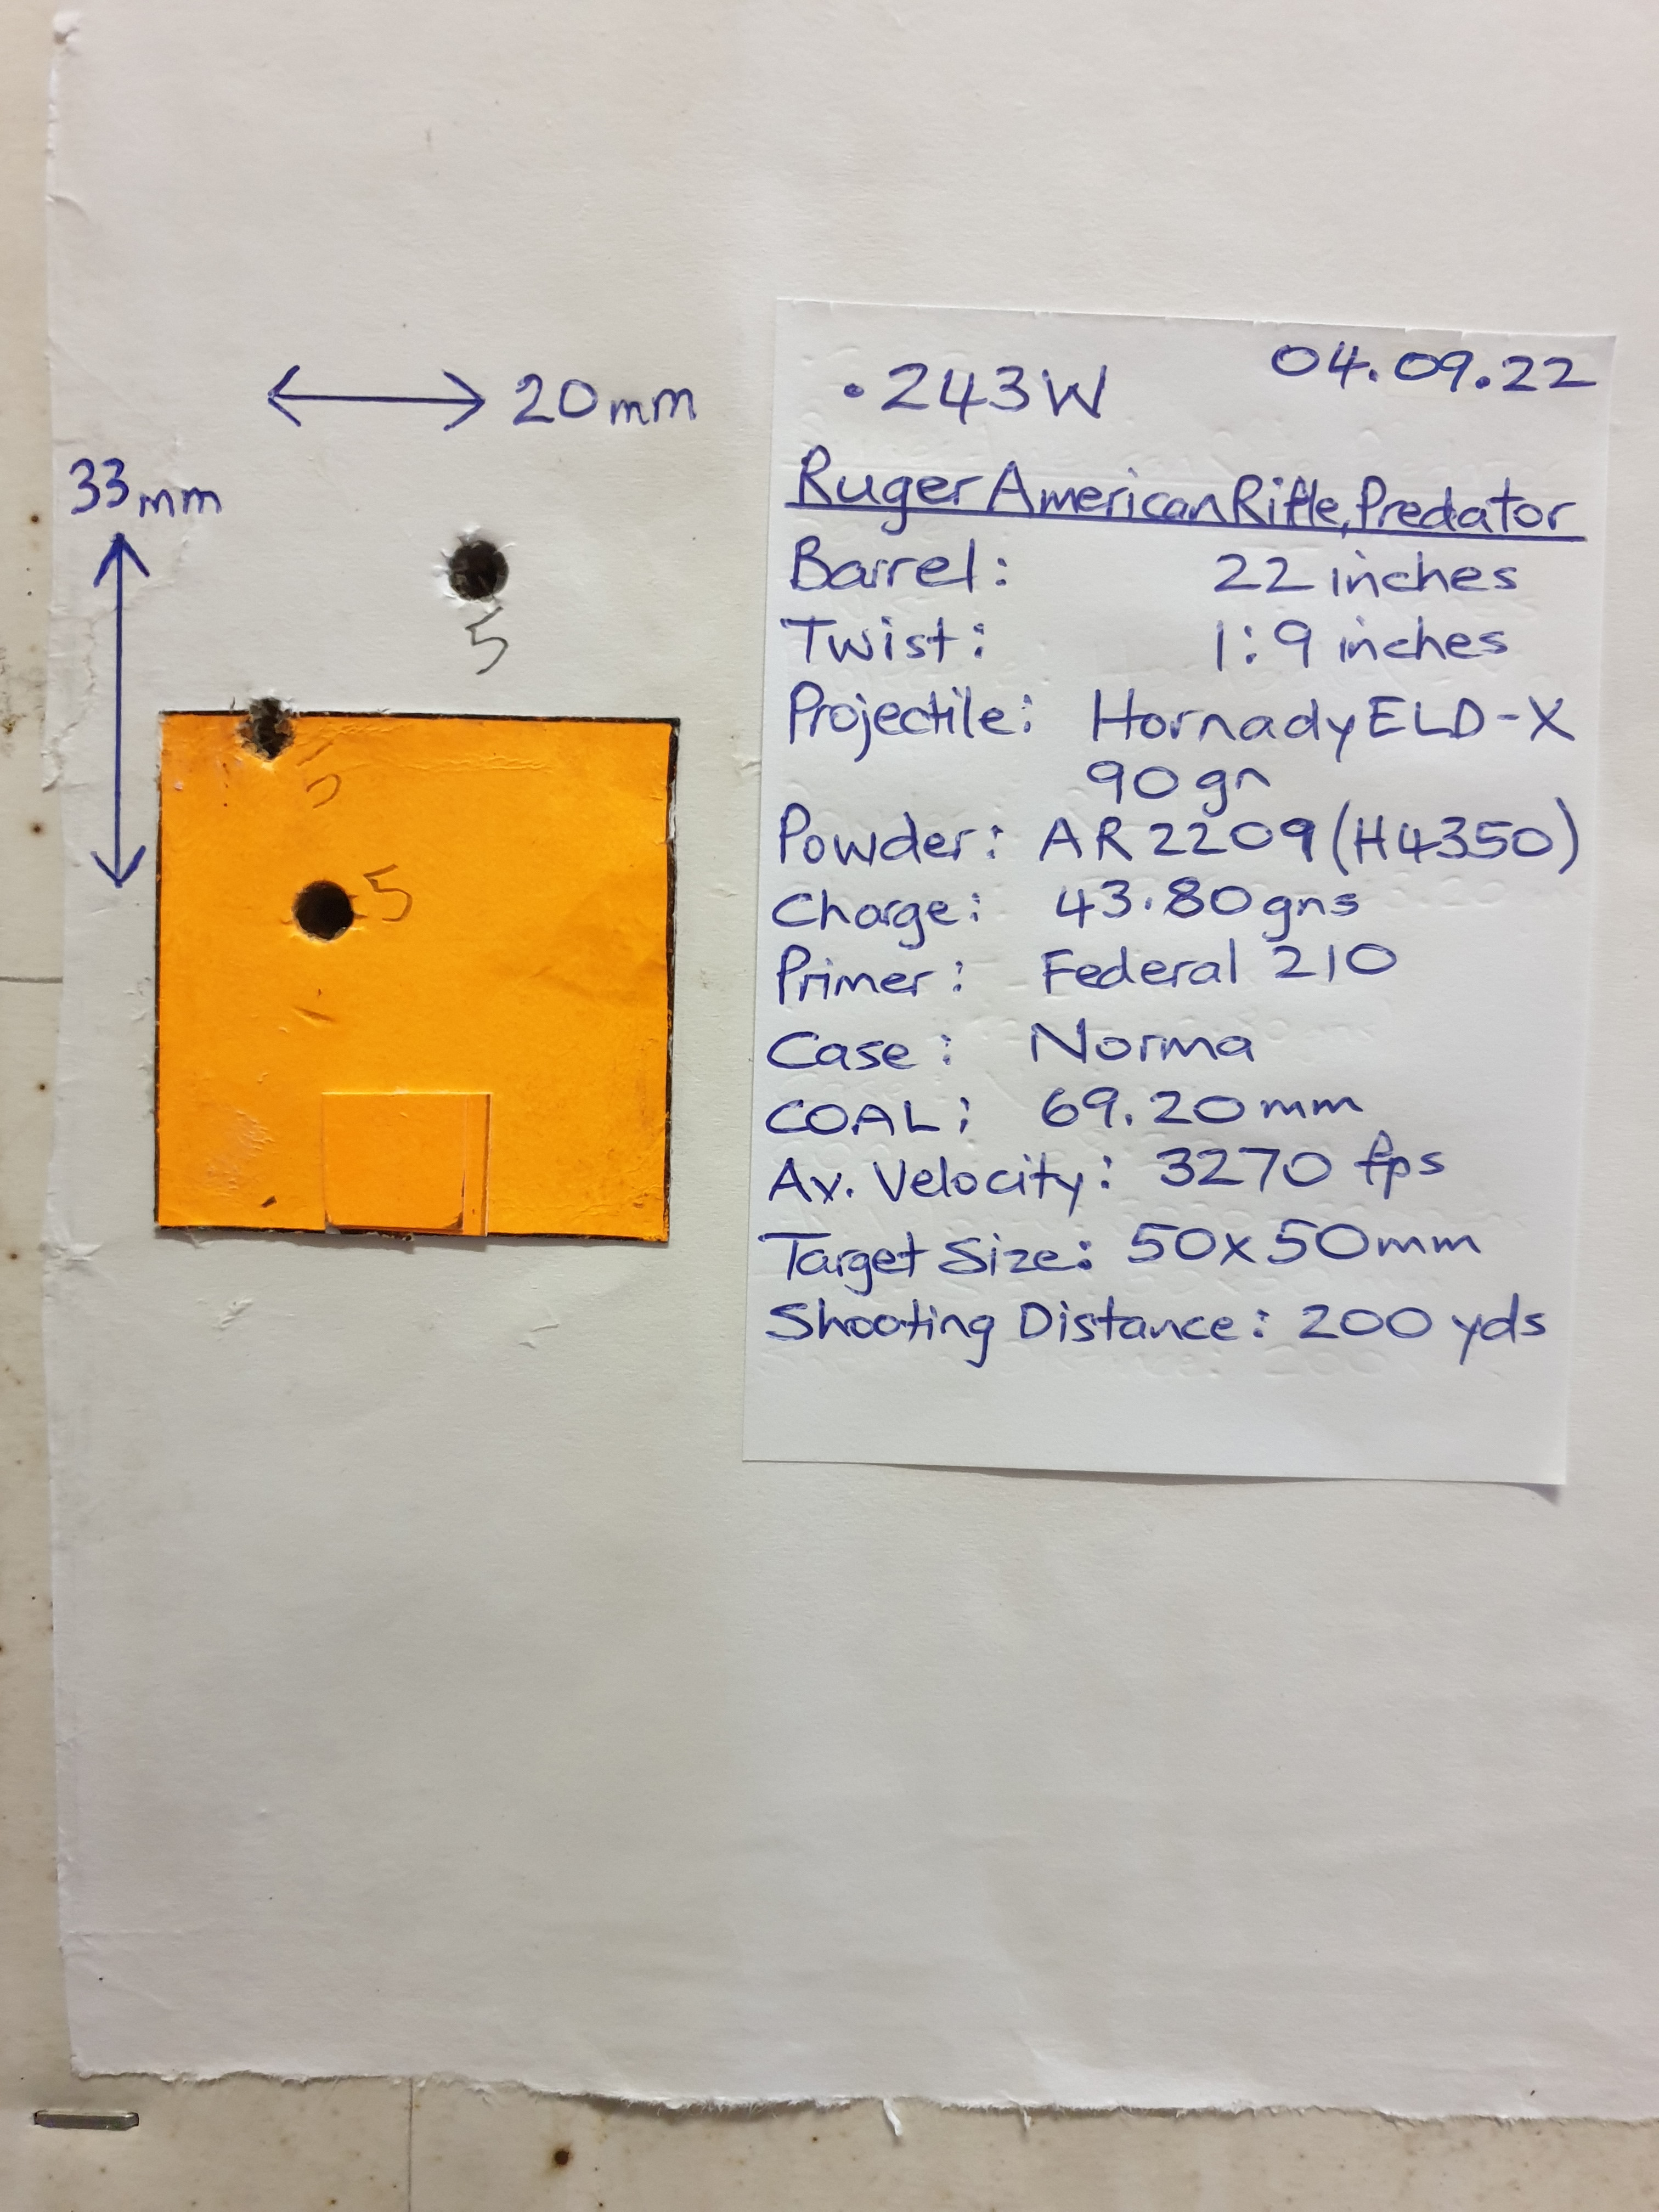 20mm
33mm
5
5
5
.243W 04.09.22
Ruger American Rifle, Predator
Barrel: 22 inches
Twist: 1:9 inches
Projectile: Hornady ELD-X
90gn
Powder: AR2209 (H4350)
Charge: 43.80gns
Primer: Federal 210
Case: Norma
COAL: 69.20mm
Av. Velocity: 3270 fps
Target Size: 50x50mm
Shooting Distance: 200 yds